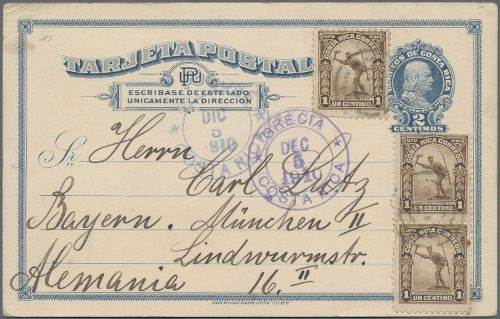 15
TARJETA POSTAL
ESCRIBASE DE ESTE LADO
UNICAMENTE LA DIRECCION
COSTA RICA CORREOS
1 UN CENTIMO 1
CORREOS DE COSTA RICA
2
CENTIMOS
DIC
5
1910
GRECIA
DEC
5
1910
COSTA RICA
Sr. Herrn Carl Lutz
Bayern. München II
Lindwurmstr.
Alemania 16. II
UPU COSTA RICA CORREOS 1910
1 UN CENTIMO 1
UPU COSTA RICA CORREOS 1910
1 UN CENTIMO 1
AMERICAN BANK NOTE CO. N.Y.